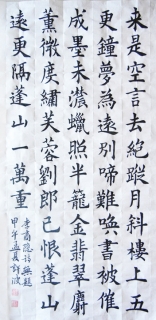 來是空言去絕蹤月斜樓上五
更鐘夢為遠別啼難喚書被催
成墨未濃蠟照半籠金翡翠麝
薰微度繡芙蓉劉郎已恨蓬山
遠更隔蓬山一萬重
李商隱詩無題
甲午孟夏